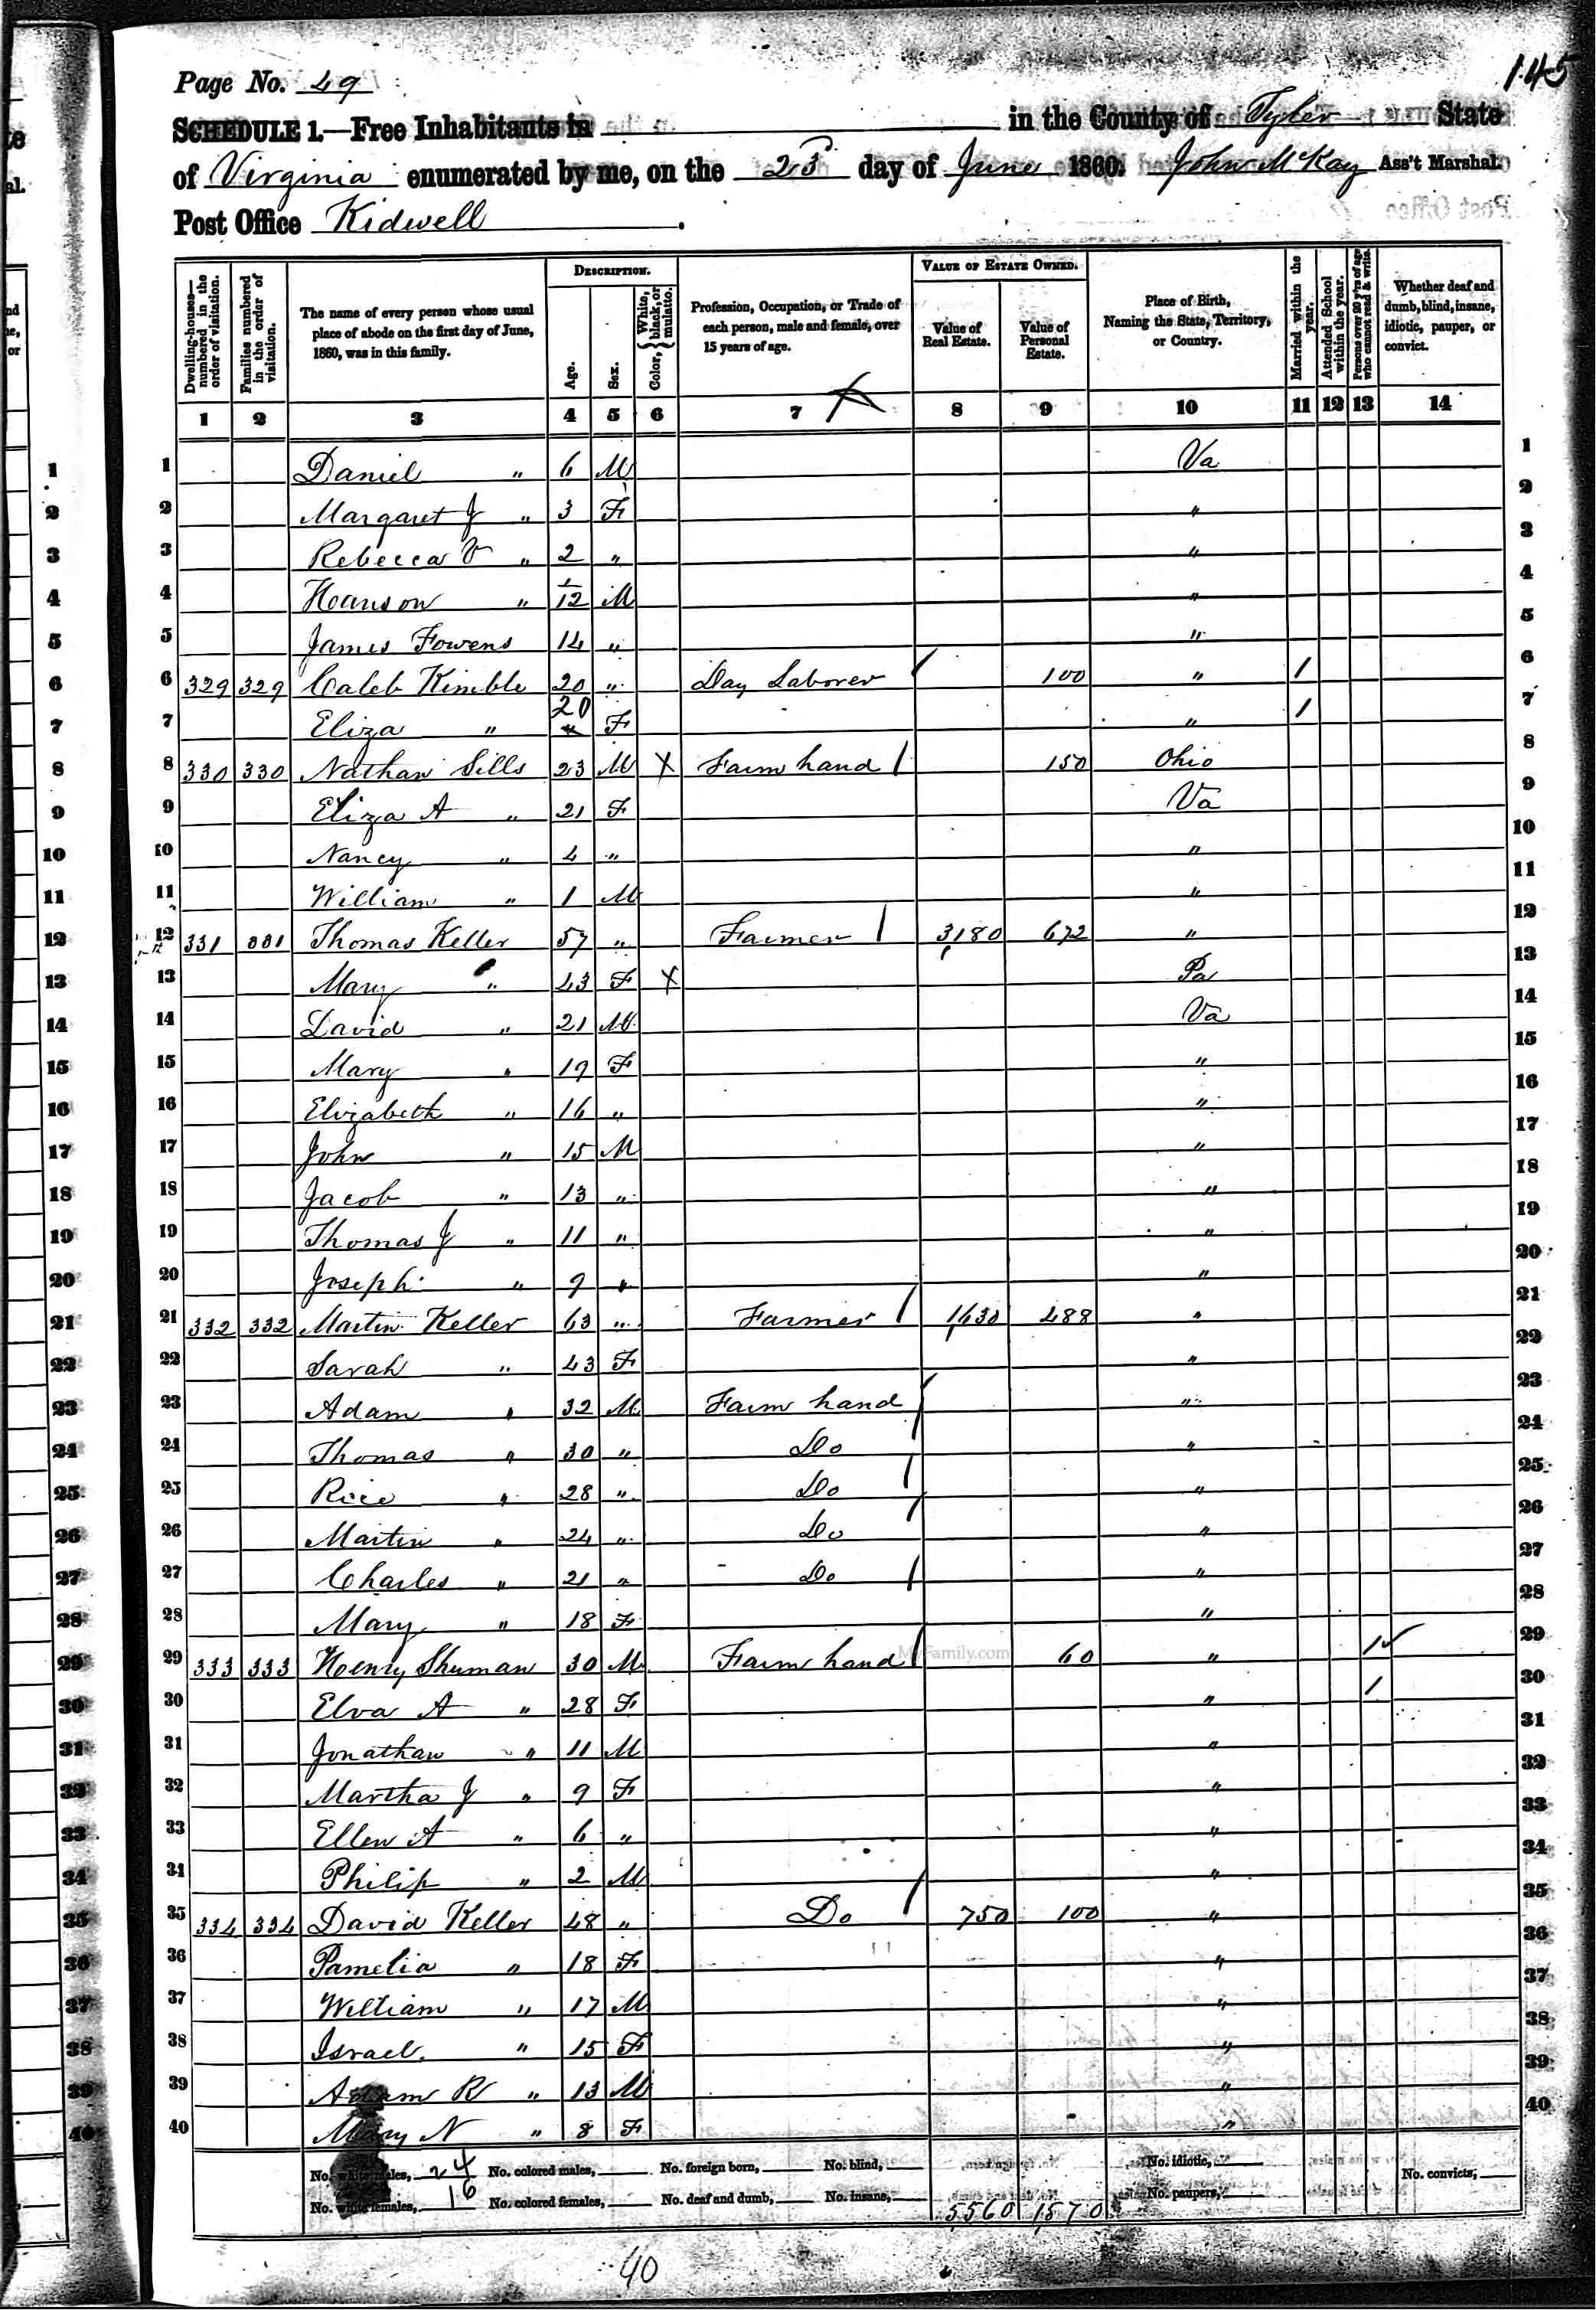 145
Page No. 49
SCHEDULE 1.—Free Inhabitants in in the County of Tyler State
of Virginia enumerated by me, on the 23 day of June 1860. John McKay Ass't Marshal.
Post Office Kidwell.
DESCRIPTION. VALUE OF ESTATE OWNED.
Dwelling-houses—numbered in the order of visitation. Families numbered in the order of visitation. The name of every person whose usual place of abode on the first day of June, 1860, was in this family. Age. Sex. Color, {White, black, or mulatto. Profession, Occupation, or Trade of each person, male and female, over 15 years of age. Value of Real Estate. Value of Personal Estate. Place of Birth, Naming the State, Territory, or Country. Married within the year. Attended School within the year. Persons over 20 y'rs of age who cannot read & write. Whether deaf and dumb, blind, insane, idiotic, pauper, or convict.
1 2 3 4 5 6 7 8 9 10 11 12 13 14
1 Daniel " 6 M Va 1
2 Margaret J " 3 F " 2
3 Rebecca V " 2 " " 3
4 Hanson " 1/12 M " 4
5 James Fowens 14 " " 5
6 329 329 Caleb Kimble 20 " Day Laborer / 100 " 1 6
7 Eliza " 20 F " 1 7
8 330 330 Nathan Sills 23 M X Farm hand / 150 Ohio 8
9 Eliza A " 21 F Va 9
10 Nancy " 4 " " 10
11 William " 1 M " 11
12 331 331 Thomas Keller 57 " Farmer / 3180 672 " 12
13 Mary " 43 F X Pa 13
14 David " 21 M Va 14
15 Mary " 19 F " 15
16 Elizabeth " 16 " " 16
17 John " 15 M " 17
18 Jacob " 13 " " 18
19 Thomas J " 11 " " 19
20 Joseph " 9 " " 20
21 332 332 Martin Keller 63 " Farmer / 1630 488 " 21
22 Sarah " 43 F " 22
23 Adam " 32 M Farm hand / " 23
24 Thomas " 30 " Do / " 24
25 Rice " 28 " Do / " 25
26 Martin " 24 " Do " 26
27 Charles " 21 " Do / " 27
28 Mary " 18 F " 28
29 333 333 Henry Shuman 30 M Farm hand / 60 " 1 ✓ 29
30 Elva A " 28 F " 1 30
31 Jonathan " 11 M " 31
32 Martha J " 9 F " 32
33 Ellen A " 6 " " 33
34 Philip " 2 M " 34
35 334 334 David Keller 48 " Do / 750 100 " 35
36 Pamelia " 18 F " 36
37 William " 17 M " 37
38 Israel " 15 F " 38
39 Adam R " 13 M " 39
40 Mary N " 8 F " 40
No. white males, 24 No. colored males, No. foreign born, No. blind, No. idiotic, No. convicts,
No. white females, 16 No. colored females, No. deaf and dumb, No. insane, 5560 1570 No. paupers,
40
MyFamily.com